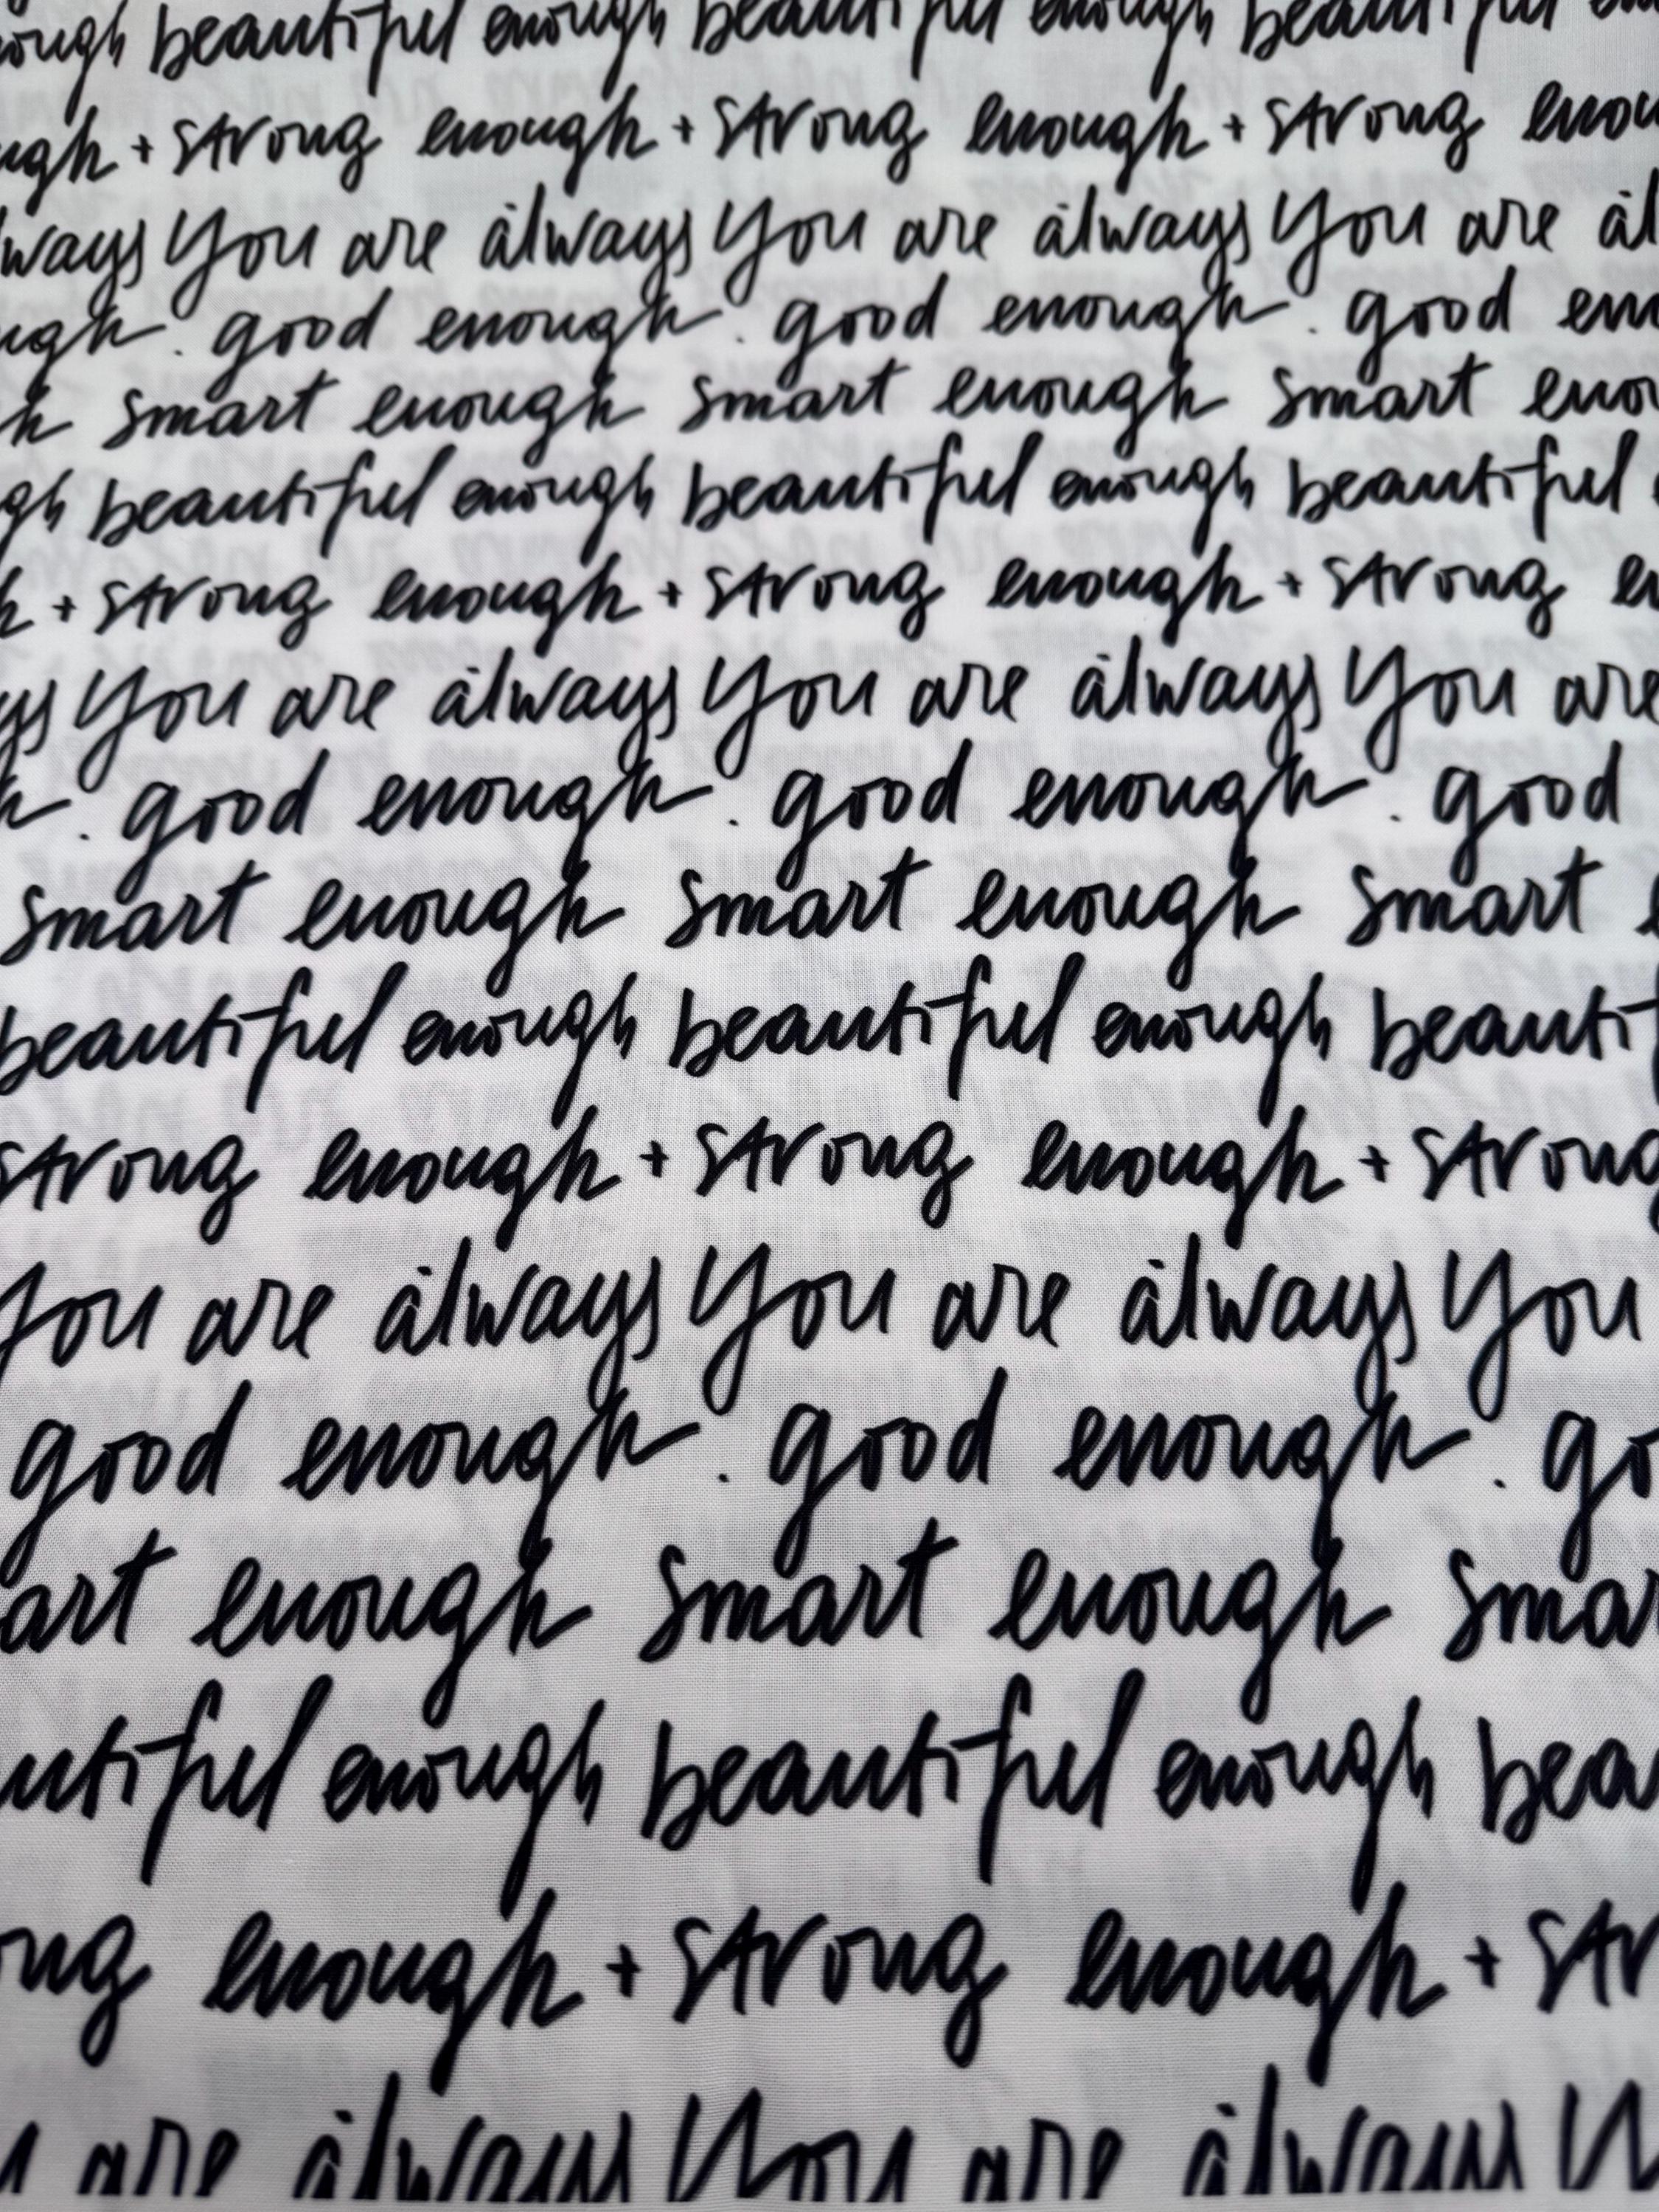 enough beautiful enough beautiful enough beautiful
enough + strong enough + strong enough + strong enough
always you are always you are always you are
enough . good enough . good enough . good
smart enough smart enough smart
beautiful enough beautiful enough beautiful
+ strong enough + strong enough + strong
you are always you are always you are
. good enough . good enough . good
smart enough smart enough smart
beautiful enough beautiful enough
strong enough + strong enough + strong
you are always you are always you
good enough . good enough .
enough smart enough
enough beautiful enough
enough + strong enough +
are always you are always